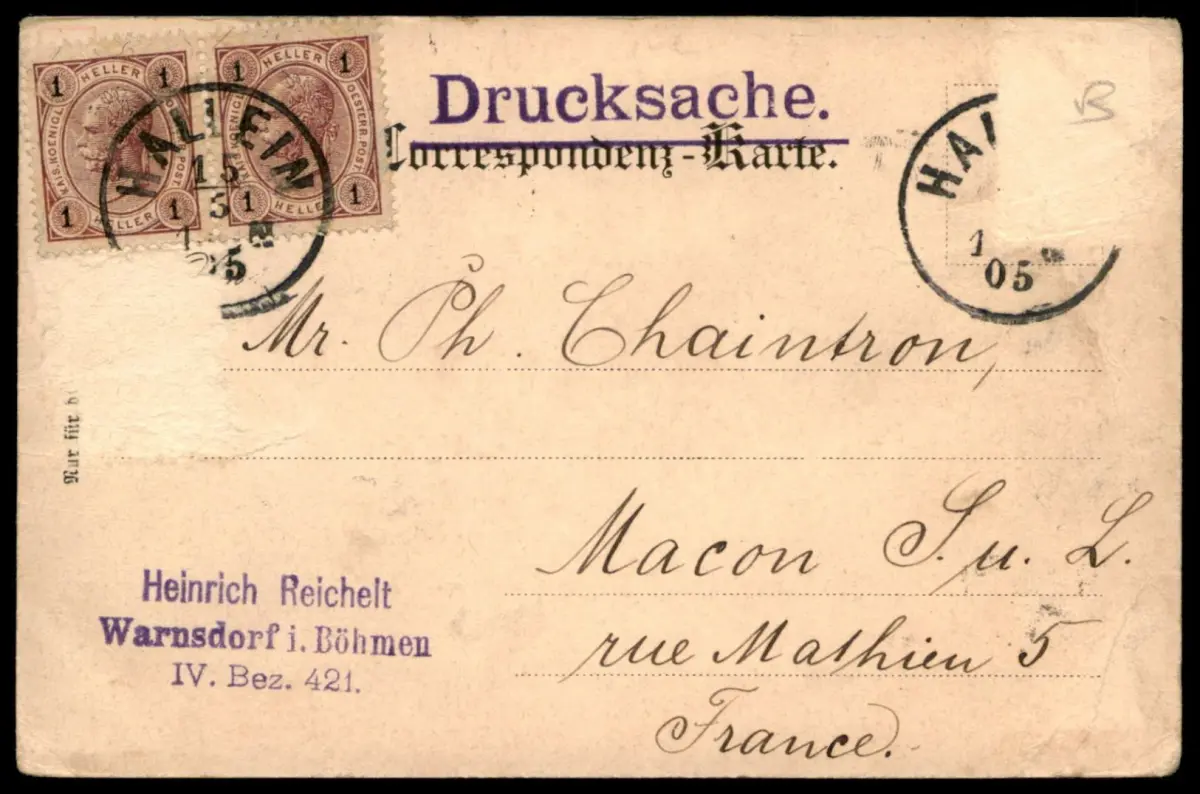 1 HELLER 1
KAIS. KOENIGL. OESTERR. POST
1 HELLER 1
1 HELLER 1
KAIS. KOENIGL. OESTERR. POST
1 HELLER 1
HALLEIN
15
5
05
Drucksache.
Correspondenz-Karte.
B
HAL
1
05
Nur für
Mr. Ph. Chaintron,
Macon S. u. L.
rue Mathieu 5
France.
Heinrich Reichelt
Warnsdorf i. Böhmen
IV. Bez. 421.